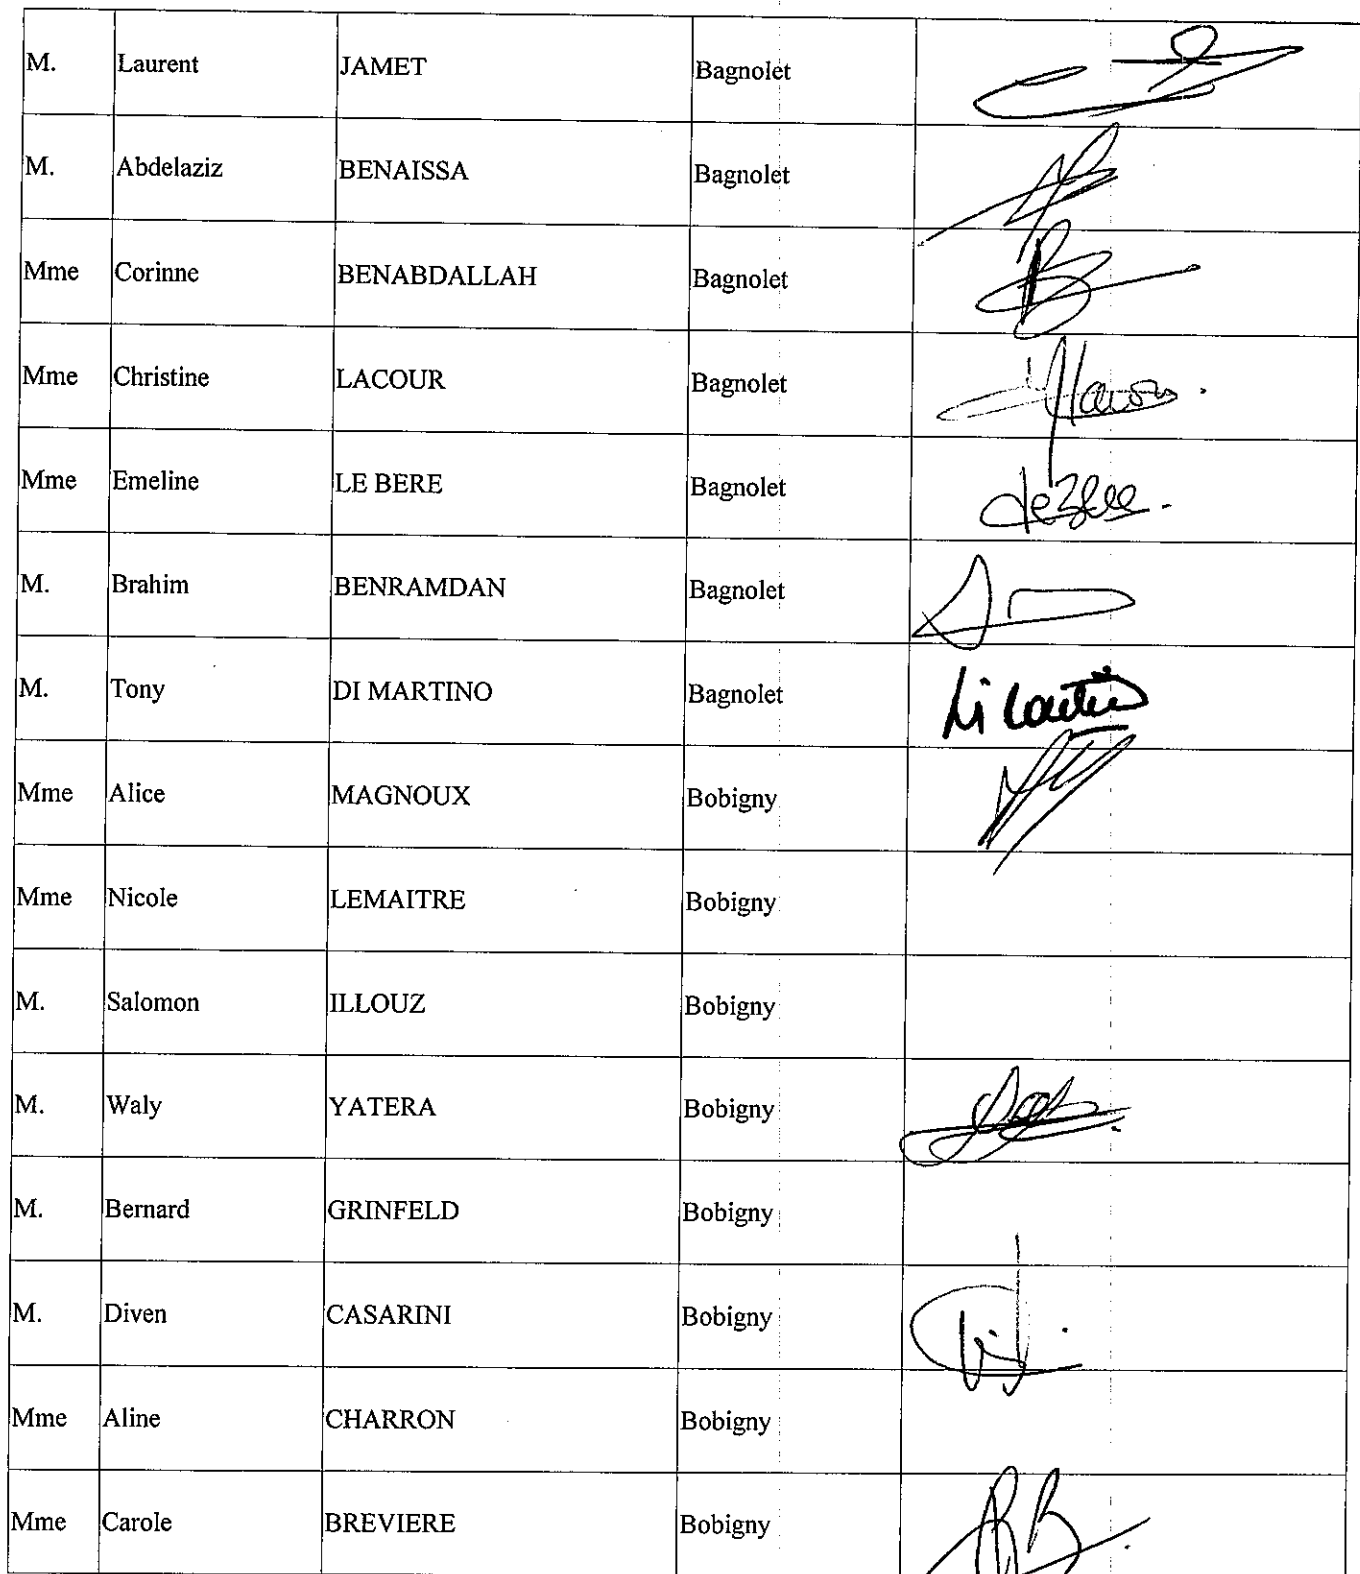 M. Laurent JAMET Bagnolet
M. Abdelaziz BENAISSA Bagnolet
Mme Corinne BENABDALLAH Bagnolet
Mme Christine LACOUR Bagnolet
Mme Emeline LE BERE Bagnolet
M. Brahim BENRAMDAN Bagnolet
M. Tony DI MARTINO Bagnolet
Mme Alice MAGNOUX Bobigny
Mme Nicole LEMAITRE Bobigny
M. Salomon ILLOUZ Bobigny
M. Waly YATERA Bobigny
M. Bernard GRINFELD Bobigny
M. Diven CASARINI Bobigny
Mme Aline CHARRON Bobigny
Mme Carole BREVIERE Bobigny